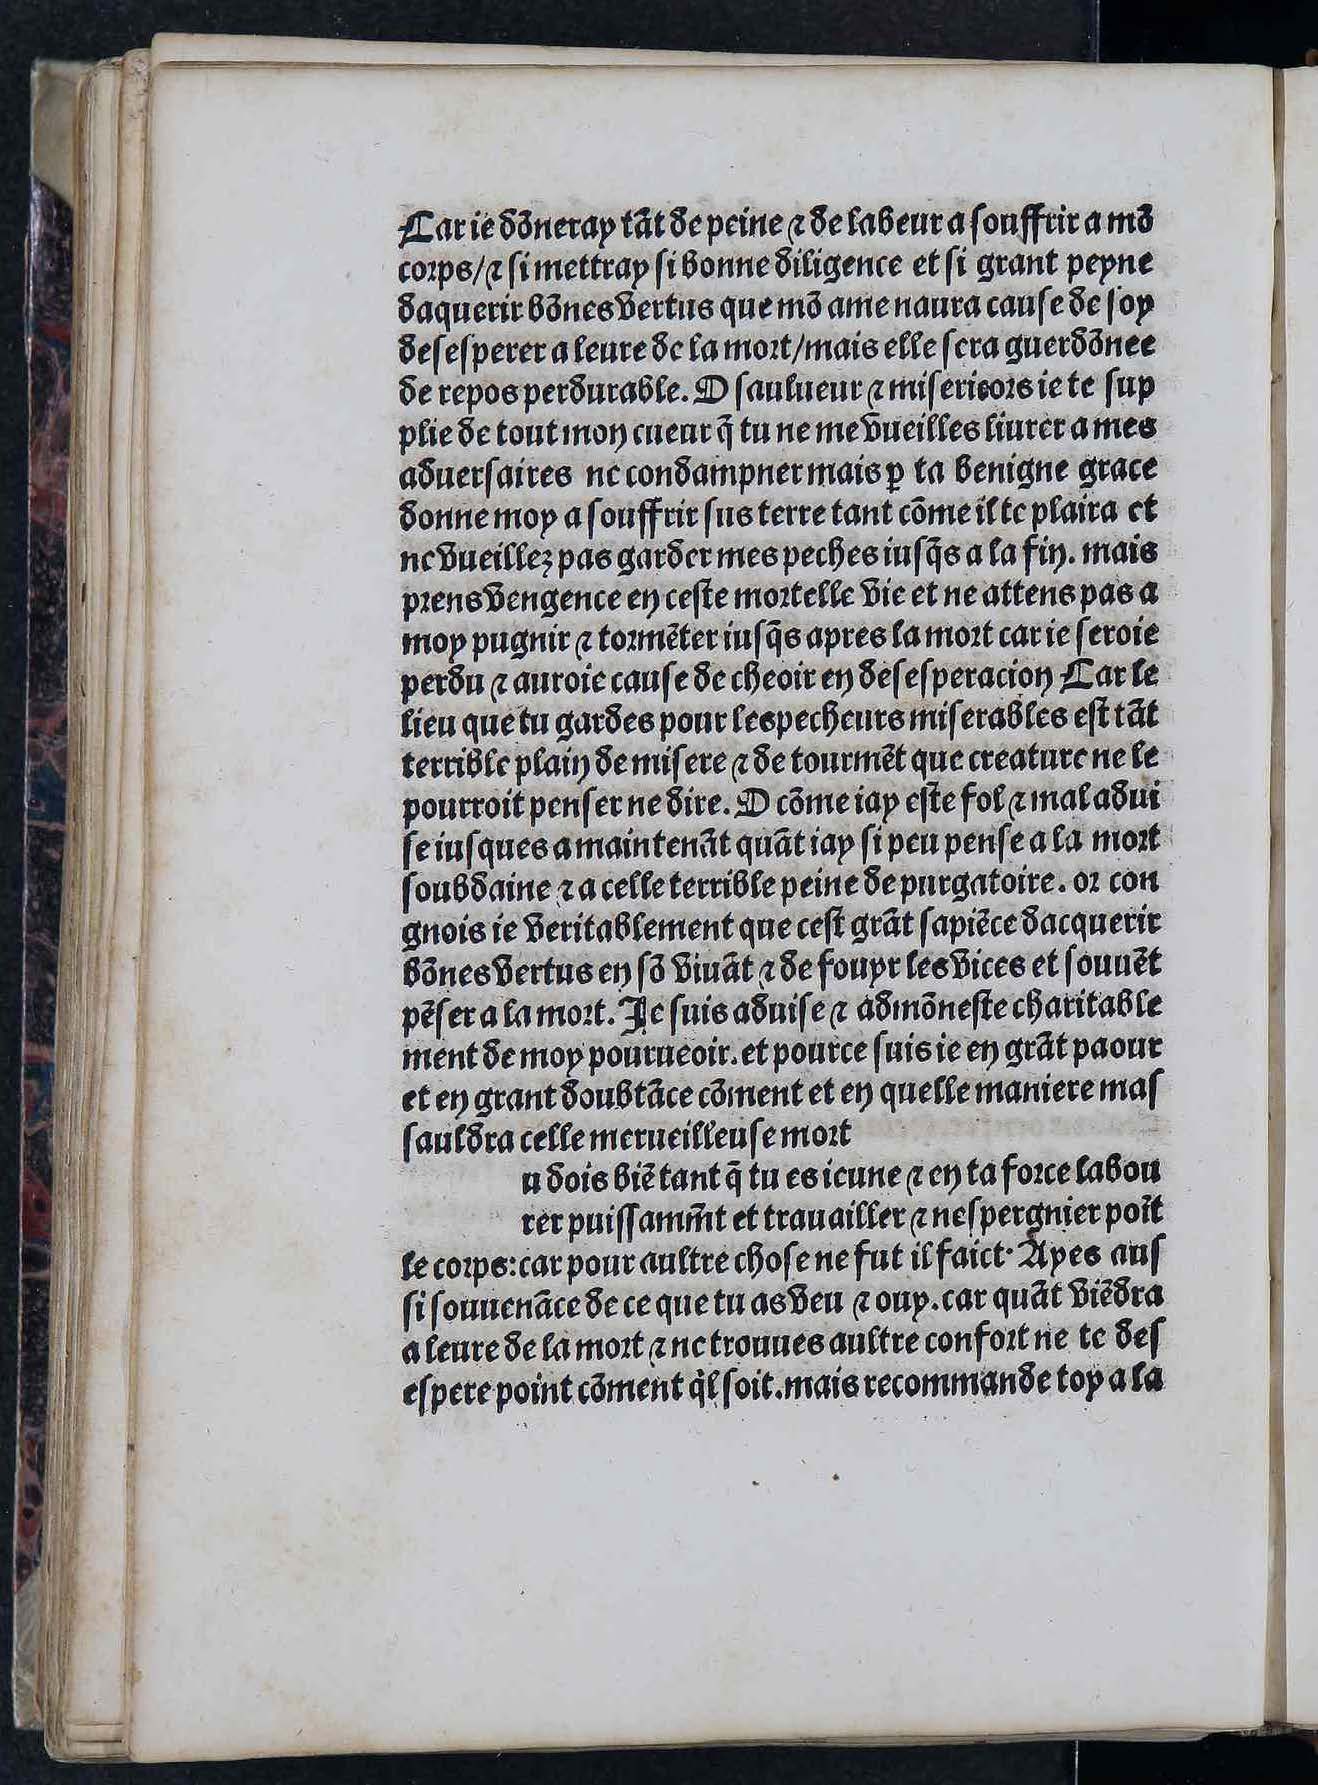 Car ie dõneray tãt de peine ⁊ de labeur a souffrir a mõ
corps/⁊ si mettray si bonne diligence et si grant peyne
daquerir bõnes vertus que mõ ame naura cause de soy
desesperer a leure de la mort/mais elle sera guerdõnee
de repos perdurable. O saulueur ⁊ misericors ie te sup
plie de tout mon cueur q̃ tu ne me vueilles liurer a mes
aduersaires ne condampner mais ꝑ ta benigne grace
donne moy a souffrir sus terre tant cõme il te plaira et
ne vueillez pas garder mes peches iusq̃s a la fin. mais
prens vengence en ceste mortelle vie et ne attens pas a
moy pugnir ⁊ tormẽter iusq̃s apres la mort car ie seroie
perdu ⁊ auroie cause de cheoir en desesperacion Car le
lieu que tu gardes pour les pecheurs miserables est tãt
terrible plain de misere ⁊ de tourmẽt que creature ne le
pourroit penser ne dire. O cõme iay este fol ⁊ mal adui
se iusques a maintenãt quãt iay si peu pense a la mort
soubdaine ⁊ a celle terrible peine de purgatoire. or con
gnois ie veritablement que cest grãt sapiẽce dacquerir
bõnes vertus en sõ viuãt ⁊ de fouyr les vices et souuẽt
pẽser a la mort. Je suis aduise ⁊ admõneste charitable
ment de moy pourueoir. et pource suis ie en grãt paour
et en grant doubtãce cõment et en quelle maniere mas
sauldra celle merueilleuse mort
u dois biẽ tant q̃ tu es ieune ⁊ en ta force labou
rer puissamm̃t et trauailler ⁊ nespergnier poĩt
le corps: car pour aultre chose ne fut il faict. Ayes aus
si souuenãce de ce que tu as veu ⁊ ouy. car quãt viẽdra
a leure de la mort ⁊ ne trouues aultre confort ne te des
espere point cõment q̃l soit. mais recommande toy a la